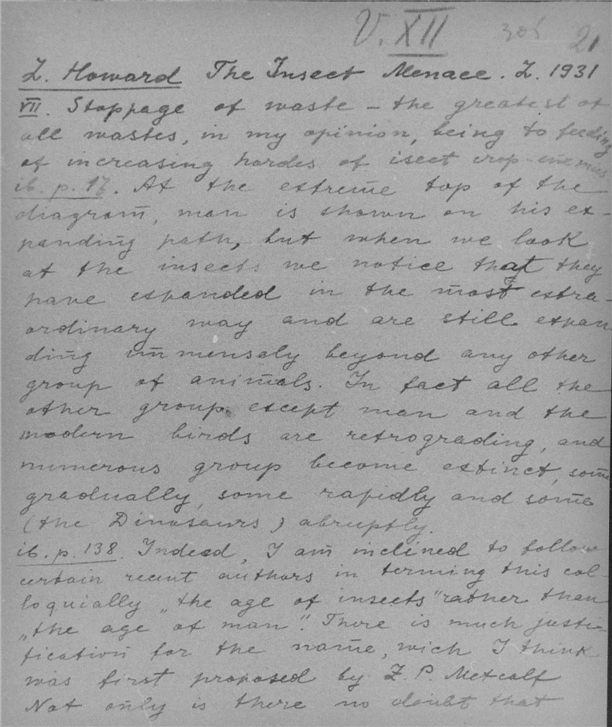 V. XII 305 21
L. Howard The Insect Menace. L. 1931
VII. Stoppage of waste – the greatest of
all wastes, in my opinion, being to feeding
of increasing hordes of isect crop-enemies
ib. p. 17. At the extreme top of the
diagram, man is shown on his ex-
panding path, but when we look
at the insects we notice that they
have expanded in the most extra
ordinary way and are still expan
ding immensely beyond any other
group of animals. In fact all the
other group except man and the
modern birds are retrograding, and
numerous group become extinct, some
gradually, some rapidly and some
(the Dinosaurs) abruptly.
ib. p. 138. Indeed, I am inclined to follow
certain recent authors in terming this col
loquially „the age of insects" rather than
„the age of man". There is much justi
fication for the name, wich I think
was first proposed by Z. P. Metcalf
Not only is there no doubt that